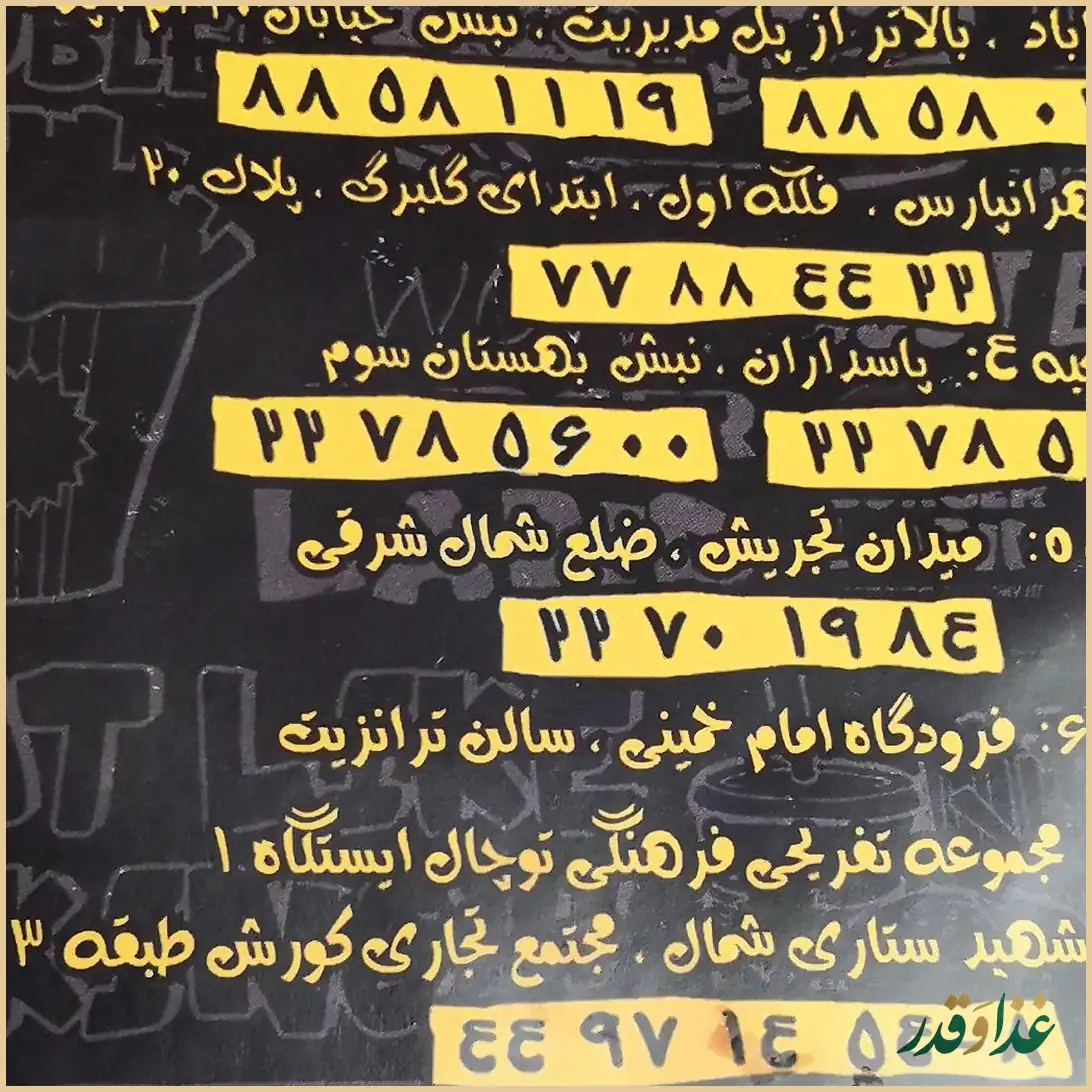 باد ، بالاتر از پل مدیریت ، نبش خیابان
۸۸ ۵۸ ۱۱ ۱۹ ۸۸ ۵۸ ۰
هرانپارس ، فلکه اول ، ابتدای گلبرگ ، پلاک ۲۰
۷۷ ۸۸ ۴۴ ۲۲
به ۴: پاسداران ، نبش بهستان سوم
۲۲ ۷۸ ۵۶۰۰ ۲۲ ۷۸ ۵
۵: میدان تجریش ، ضلع شمال شرقی
۲۲ ۷۰ ۱۹ ۸۴
۶: فرودگاه امام خمینی ، سالن ترانزیت
مجموعه تفریحی فرهنگی توچال ایستگاه ۱
شهید ستاری شمال ، مجتمع تجاری کورش طبقه ۳
۴۴ ۹۷ ۱۴ ۵
غذا و قدر